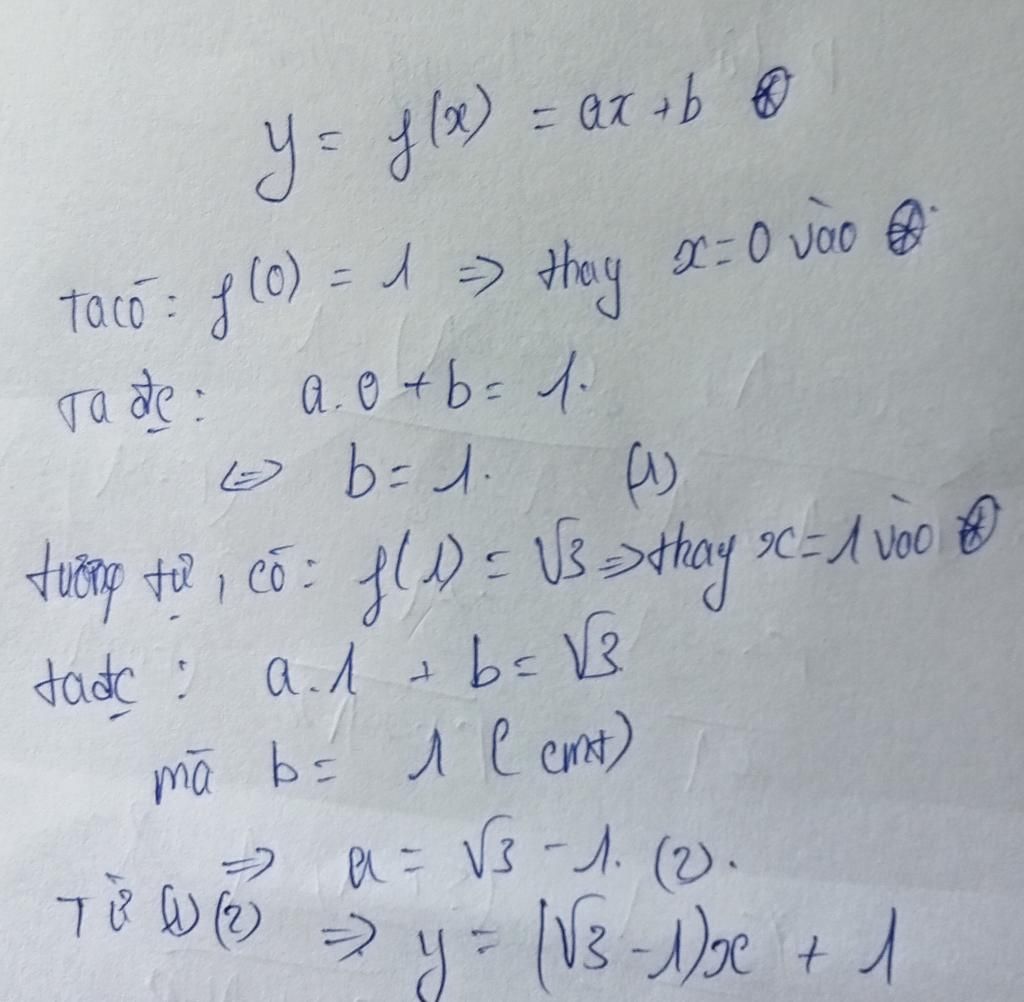 y = f(x) = ax + b ⊛
Ta có: f(0) = 1 => thay x=0 vào ⊛.
Ta đc: a.0 + b = 1.
<=> b = 1. (1)
tương tự, có: f(1) = √3 => thay x=1 vào ⊛
ta đc: a.1 + b = √3
mà b = 1 (cmt)
=> a = √3 - 1. (2).
Từ (1) (2) => y = (√3 - 1)x + 1